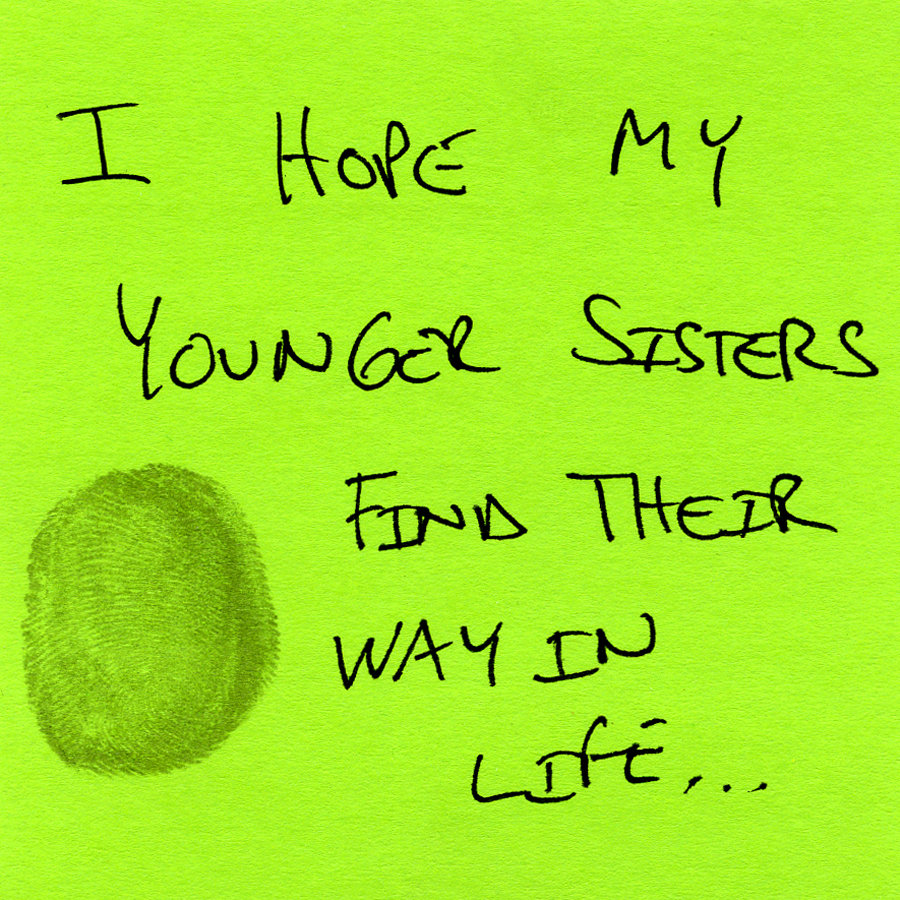 I HOPE MY
YOUNGER SISTERS
FIND THEIR
WAY IN
LIFE...